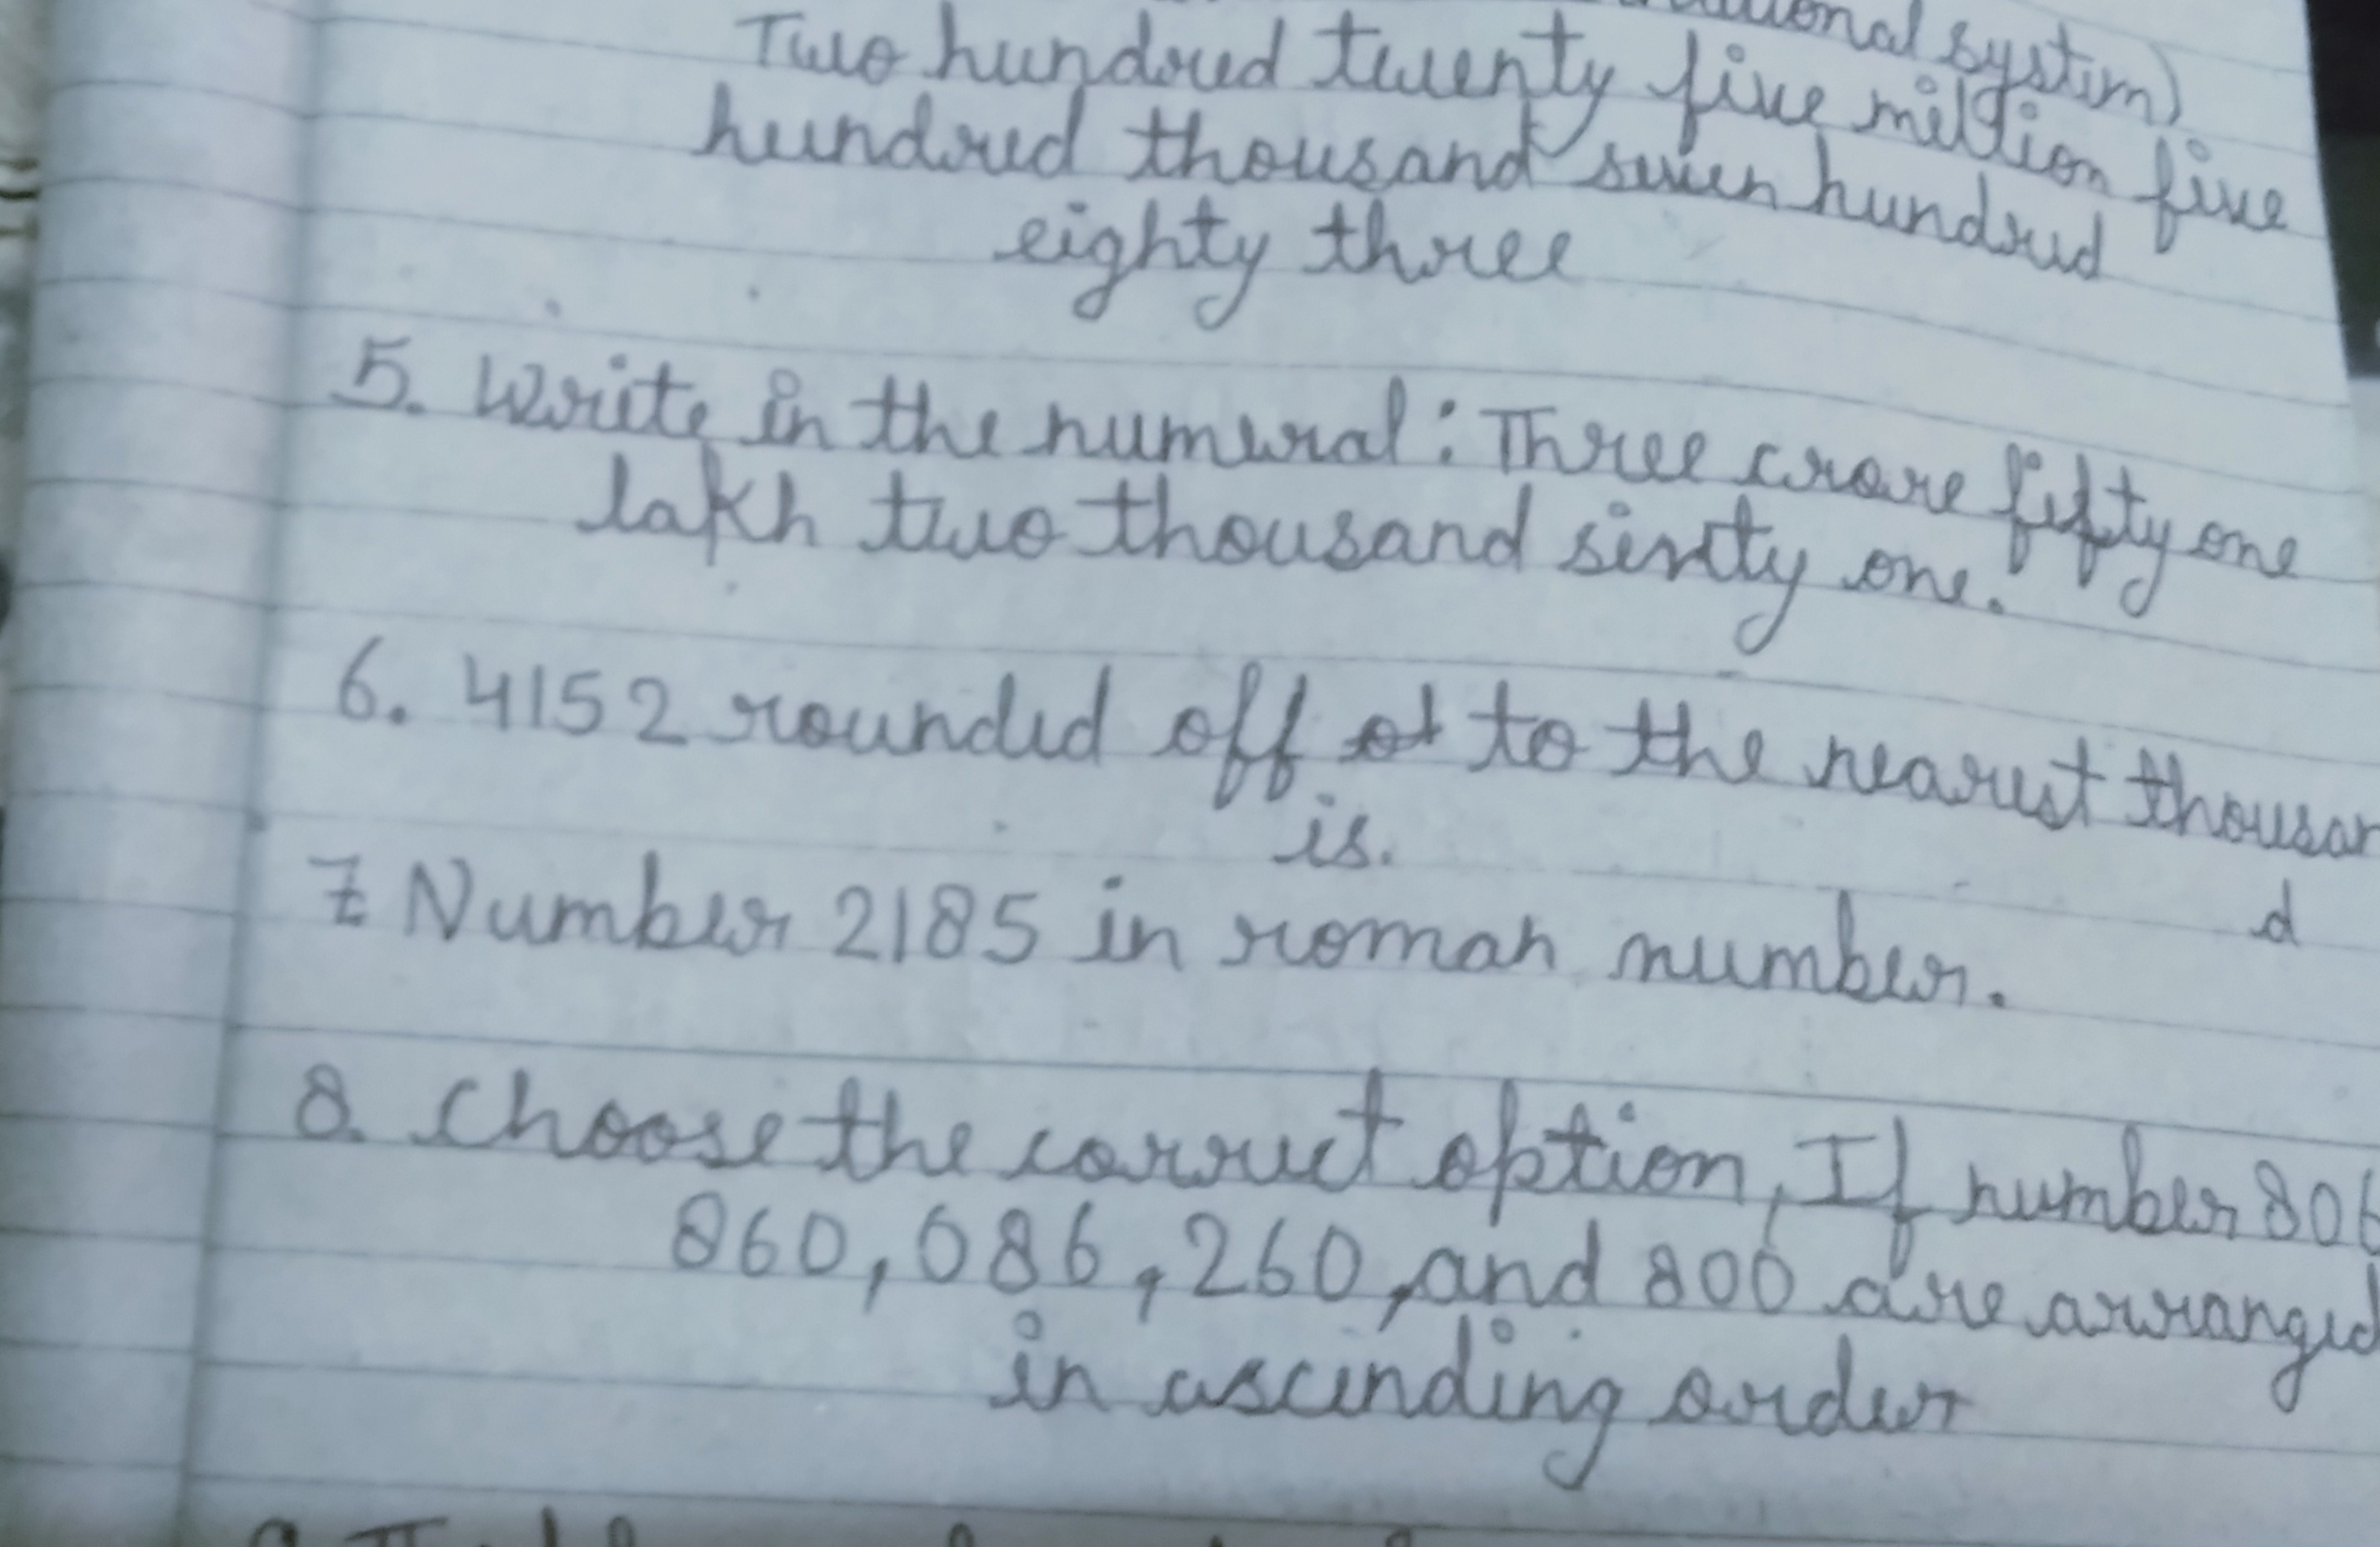 system)
Two hundred twenty five million five
hundred thousand seven hundred
eighty three
5. Write in the numeral: Three crore fifty one
lakh two thousand sixty one.
6. 4152 rounded off to the nearest thousan
d
is.
7 Number 2185 in roman number.
8. Choose the correct option, If number 806
860, 086, 260, and 806 are arranged
in ascending order